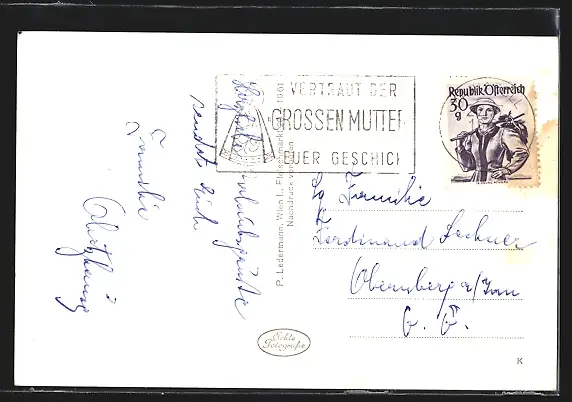 Herzliche Urlaubsgrüße
sendet Euch
Familie
P. Ledermann, Wien I., Fleischmarkt
1961
Nachdruck verboten
VERTRAUT DER
GROSSEN MUTTER
EUER GESCHICK
Republik Österreich
30
g
Familie
Ferdinand Lechner
Obernberg a/Inn
O. Ö.
Echte
Fotografie
K